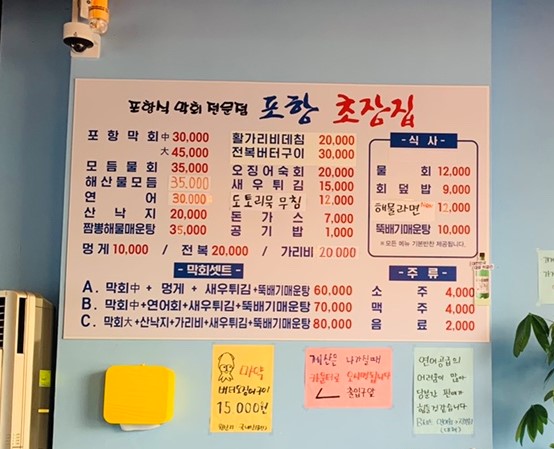 포항식 막회 전문점 포항 초장집
포항막회 中 30,000
大 45,000
모듬물회 35,000
해산물모듬 35,000
연어 30,000
산낙지 20,000
짬뽕해물매운탕 35,000
활가리비데침 20,000
전복버터구이 30,000
오징어숙회 20,000
새우튀김 15,000
도토리묵 무침 12,000
돈가스 7,000
공기밥 1,000
멍게 10,000 / 전복 20,000 / 가리비 20,000
- 식사 -
물회 12,000
회덮밥 9,000
해물라면 New 12,000
뚝배기매운탕 10,000
※모든 메뉴 기본반찬 제공됩니다.
- 막회세트 -
A. 막회中 + 멍게 + 새우튀김+뚝배기매운탕 60,000
B. 막회中+연어회+새우튀김+뚝배기매운탕 70,000
C. 막회大+산낙지+가리비+새우튀김+뚝배기매운탕 80,000
- 주류 -
소주 4,000
맥주 4,000
음료 2,000
마약
15,000원
계산은 나가실때
카운터로
출입구앞
연어공급의
어려움이 많아
당분간 판매가
힘들것 같습니다